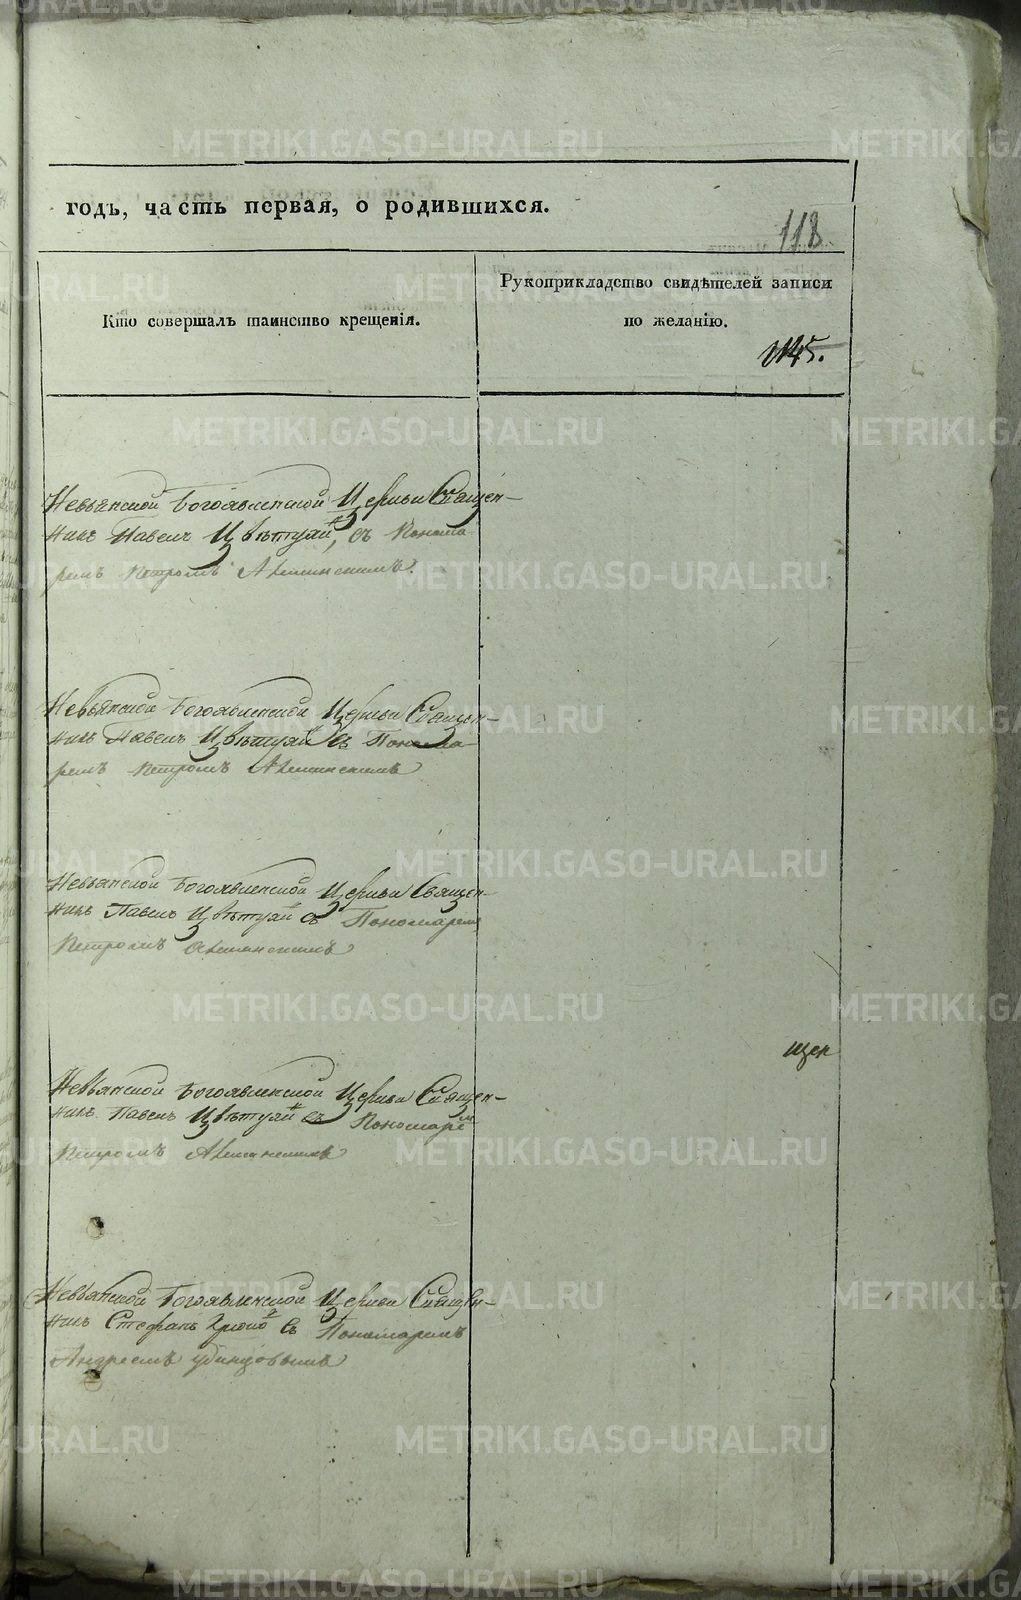 годъ, часть первая, о родившихся.
118
Кто совершалъ таинство крещенія.
Рукоприкладство свидѣтелей записи
по желанію.
Невьянской Богоявленской Церкви Священ-
никъ Павелъ Цвѣтухинъ, съ Понома
ремъ Петромъ
Невьянской Богоявленской Церкви Священ-
никъ Павелъ съ Понома
ремъ Петромъ
Невьянской Богоявленской Церкви Священ-
никъ Павелъ съ Пономаремъ
Петромъ
Невьянской Богоявленской Церкви Священ-
никъ Павелъ съ Пономаремъ
Петромъ
Невьянской Богоявленской Церкви Священ-
никъ Стефанъ съ Пономаремъ
Андреемъ Удинцовымъ
METRIKI.GASO-URAL.RU